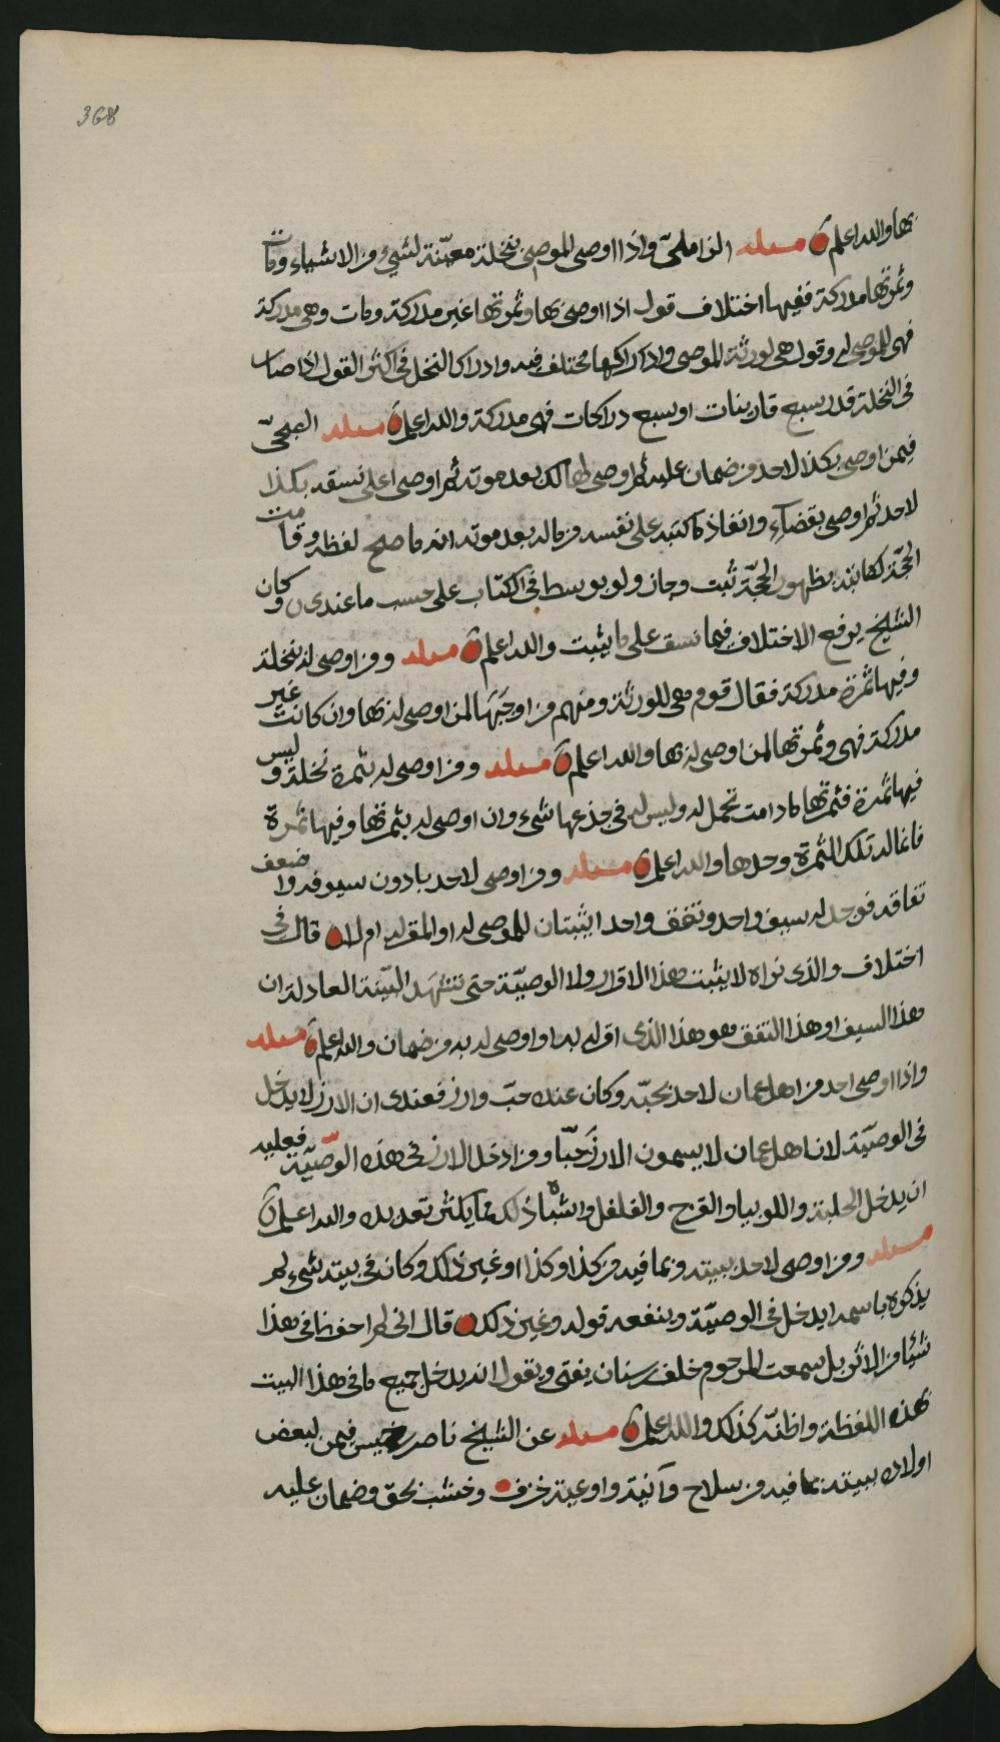 368
بها والله اعلم مسئلة الزاملي واذا اوصى الموصي بنخلة معيّنة لشيء من الاشياء ومات
وثمرتها مدركة ففيها اختلاف قول اذا اوصى بها وثمرتها غير مدركة ومات وهي مدركة
فهي للموصى له وقول هي لورثة الموصي وادراكها مختلف فيه وادراك النخل في اكثر القول اذا صار
في النخلة قدر سبع قارينات او سبع دراكات فهي مدركة والله اعلم مسئلة الصبحيّ
فيمن اوصى بكذا لاحد من ضمان عليه ثم اوصى لهالك بعد موته ثم اوصى اعلى نسقه بكذا
لاحد ثم اوصى بقضاء وانفاذ ما كتبه على نفسه من ماله بعد موته انه ما صلح لفظه وقامت
الحجّة لكاتبه بظهور الحجّة ثبت وجاز ولو بوسط في الكتاب على حسب ما عندي وكان
الشيخ يرفع الاختلاف فيما نسق على ما يثبت والله اعلم مسئلة ومن اوصى له بنخلة
وفيها ثمرة مدركة فقال قوم هي للورثة ومنهم من اوجبها لمن اوصى له بها وان كانت غير
مدركة فهي وثمرتها لمن اوصى له بها والله اعلم مسئلة ومن اوصى له بثمرة نخلة وليس
فيها ثمرة فثمرتها ما دامت تحمل له وليس له في جذعها شيء وان اوصى له بثمرتها وفيها ثمرة
فانما له تلك الثمرة وحدها والله اعلم مسئلة ومن اوصى لاحد بادون سيوفه واضعف
تفاقه فوجد له سيف واحد وتفق واحد ايثبتان للموصى له او المقر له ام لا قال في
اختلاف والذي نراه لا يثبت هذا الاقرار ولا الوصيّة حتى تشهد البيّنة العادلة ان
هذا السيف او هذا التفق هو هذا الذي اقر له به او اوصى له به من ضمان والله اعلم مسئلة
واذا اوصى احد من اهل عمان لاحد بحبّه وكان عنده حبّ وارز فعندي ان الارز لا يدخل
في الوصيّة لان اهل عمان لا يسمون الارز حبّا ومن ادخل الارز في هذه الوصيّة فعليه
ان يدخل الحلبة واللوبيا والقرح والفلفل واشباه ذلك مما يكثر تعديده والله اعلم
مسئلة ومن اوصى لاحد ببيته وبما فيه من كذا وكذا او غير ذلك وكان في بيته شيء لم
يذكره باسمه ايدخل في الوصيّة وينفعه قوله وغير ذلك قال اني لم احفظ في هذا
شيئا من الاثر بل سمعت المرحوم خلف بن سنان يفتي ويقول انه يدخل جميع ما في هذا البيت
بهذه اللفظة واظنّه كذلك والله اعلم مسئلة عن الشيخ ناصر بن خميس فيمن لبعض
اولاده ببيته بما فيه من سلاح وآنية واوعية خزف وخشب بحق وضمان عليه